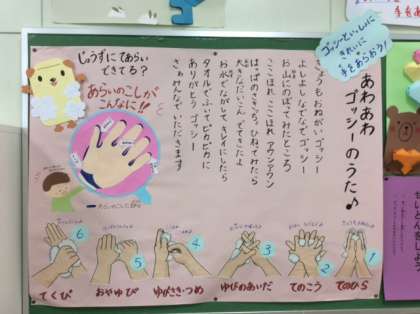 ゴッシーといっしょに
きれいに
手をあらおう!
あわあわ
ゴッシーのうた♪
きょうも おねがい ゴッシー
よしよしなでなで ゴッシー
お山にのぼって みたところ
ここほれ ここほれ アワンアワン
はっぱのさきっちょ ひねってみたら
大きなだいこん でてきたよ
お水でながして キレイにしたら
タオルでふいて ピカピカに
ありがとう ゴッシー
さぁ けんていただきます
じょうずに てあらい
できてる?
あらいのこしが
こんなに!!
1
てのひら
2
てのこう
3
ゆびのあいだ
4
ゆびさき・つめ
5
おやゆび
6
てくび